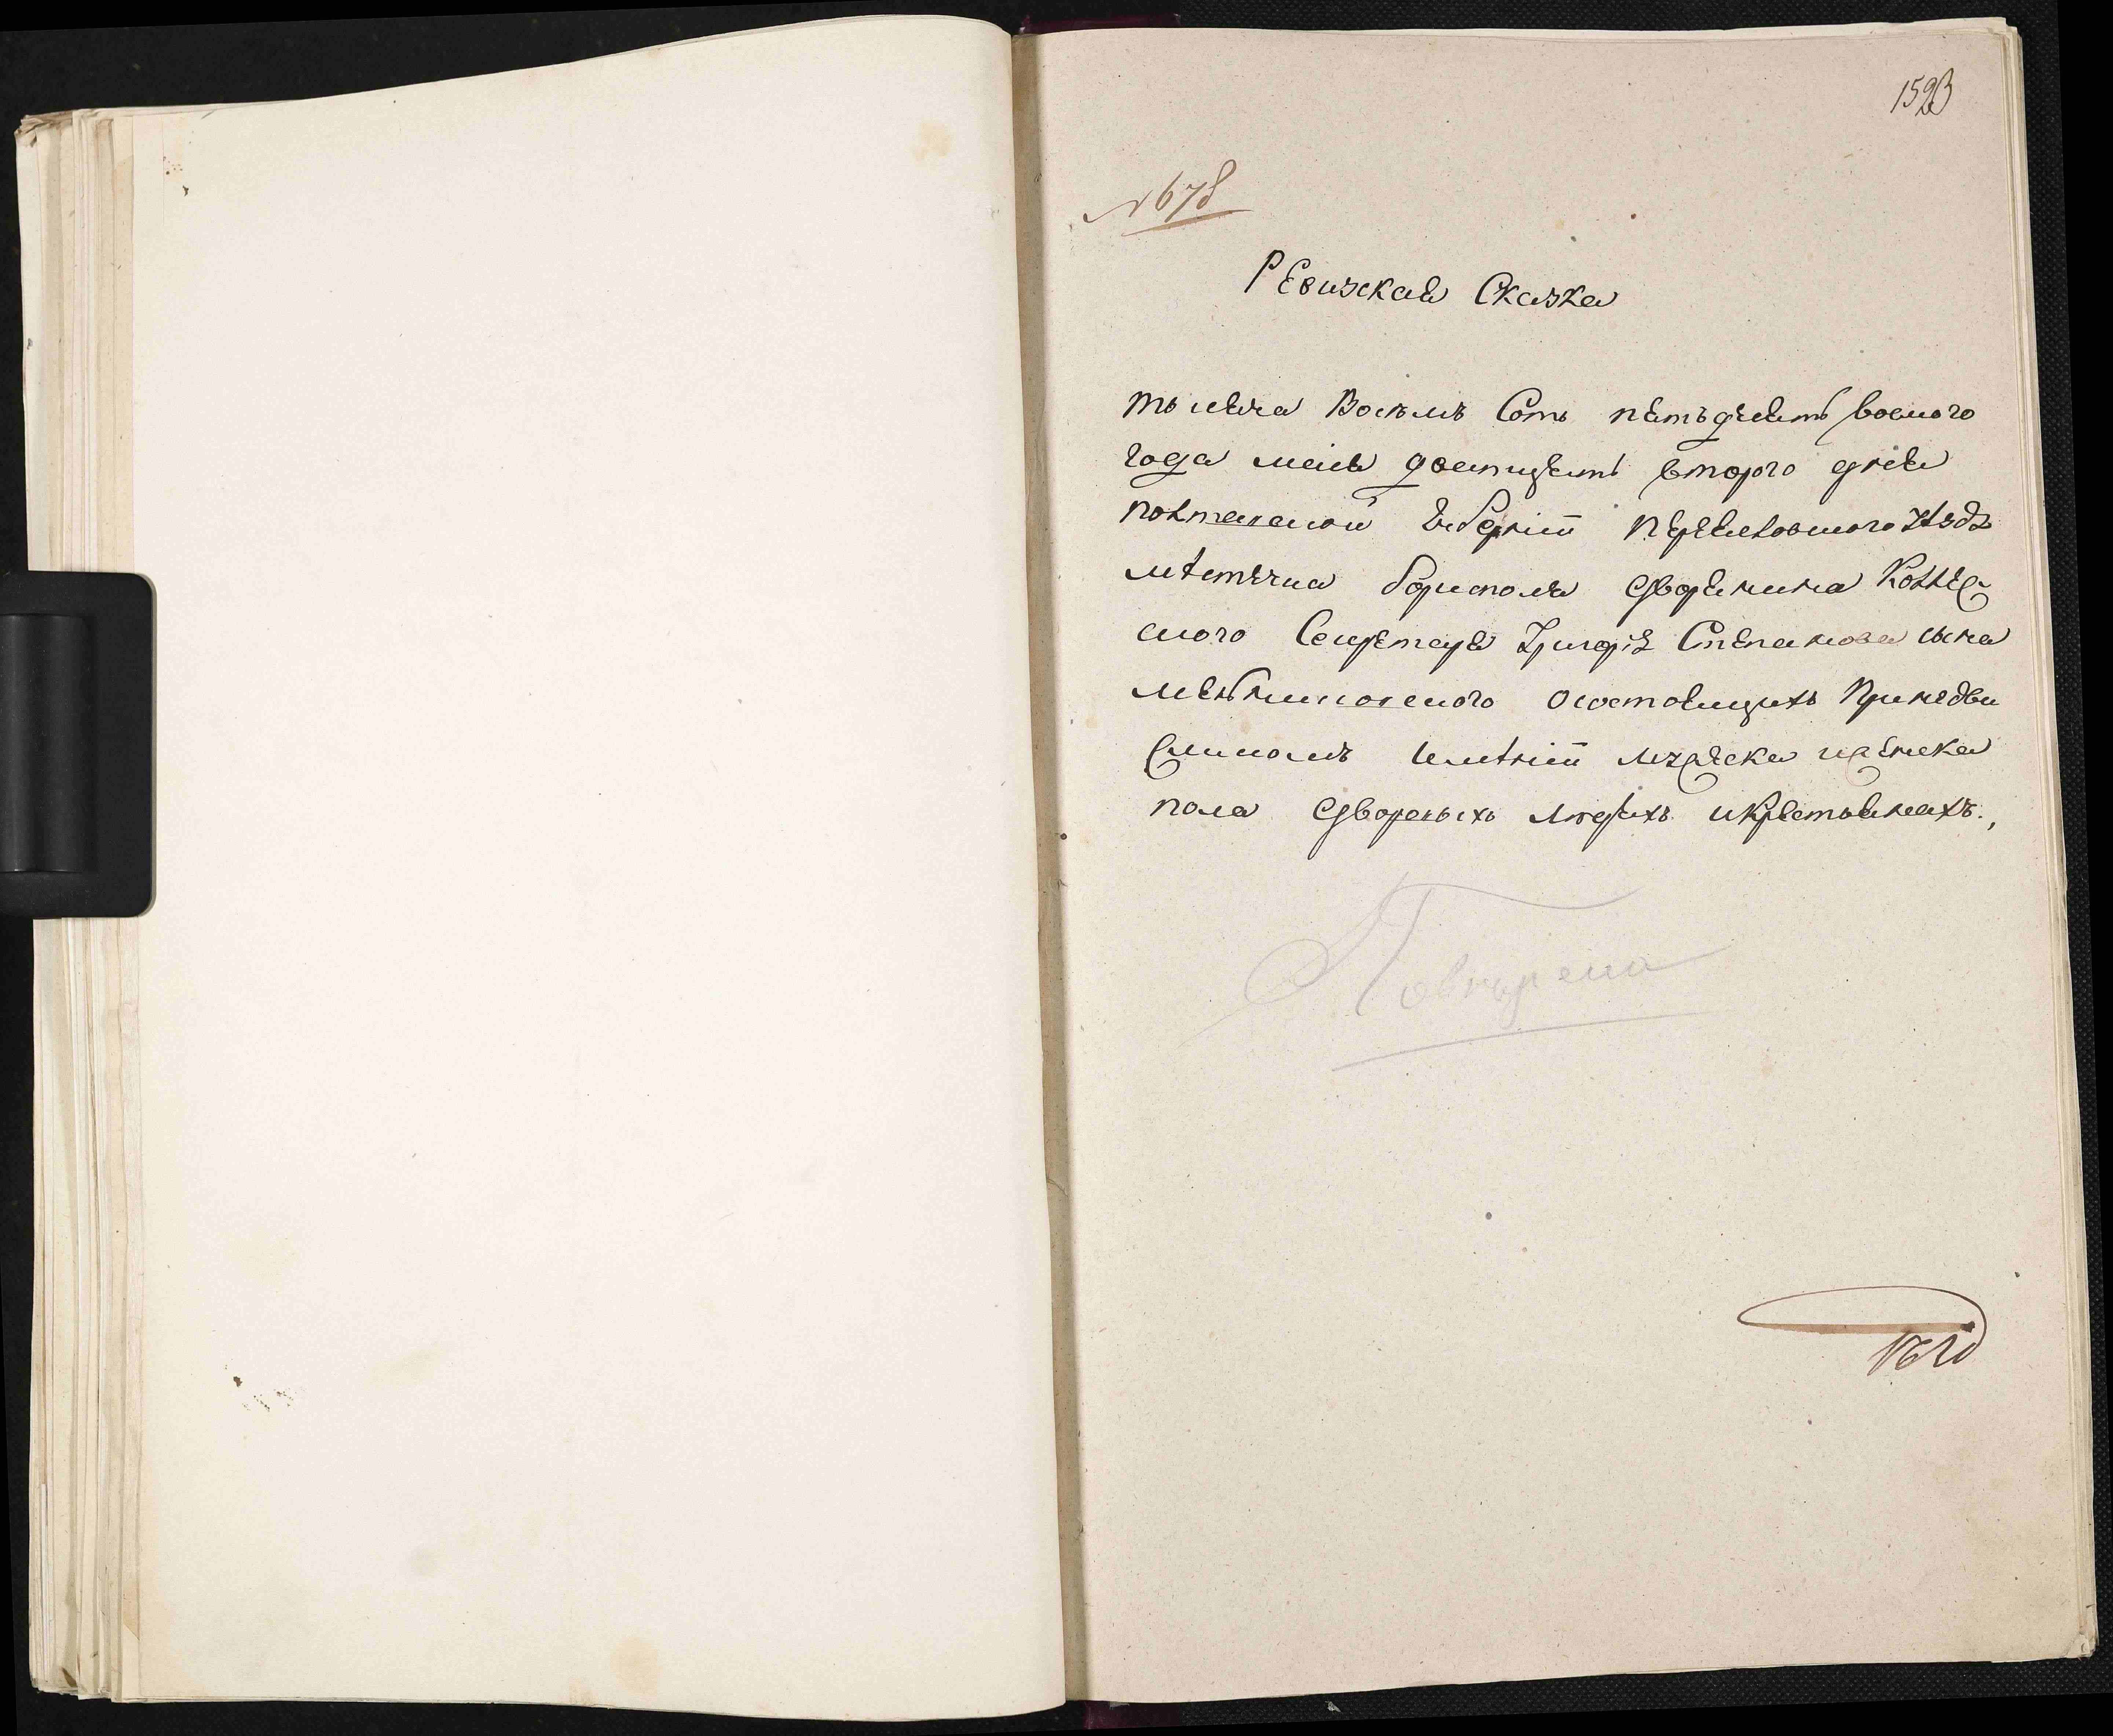 1523
№ 678
Ревизская Сказка
тысяча Восемь Сотъ пятьдесятъ восмого
года маия двадцять второго дня
полтавской губернии Переясловского уезда
местечка борисполя дворянина Коллеж
ского Секретаря Григория Степанова сына
состоящихъ При недви
жимомъ имении мужеска и женска
пола дворовыхъ людяхъ и крестьянахъ.,
Поверена